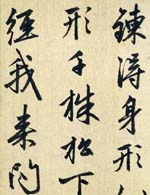 鍊得身形
形千株松下
經我來問